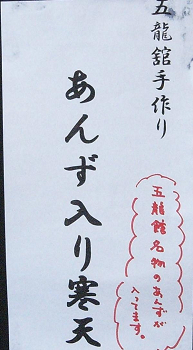 五龍舘手作り
あんず入り寒天
五龍館名物のあんずが
入ってます。